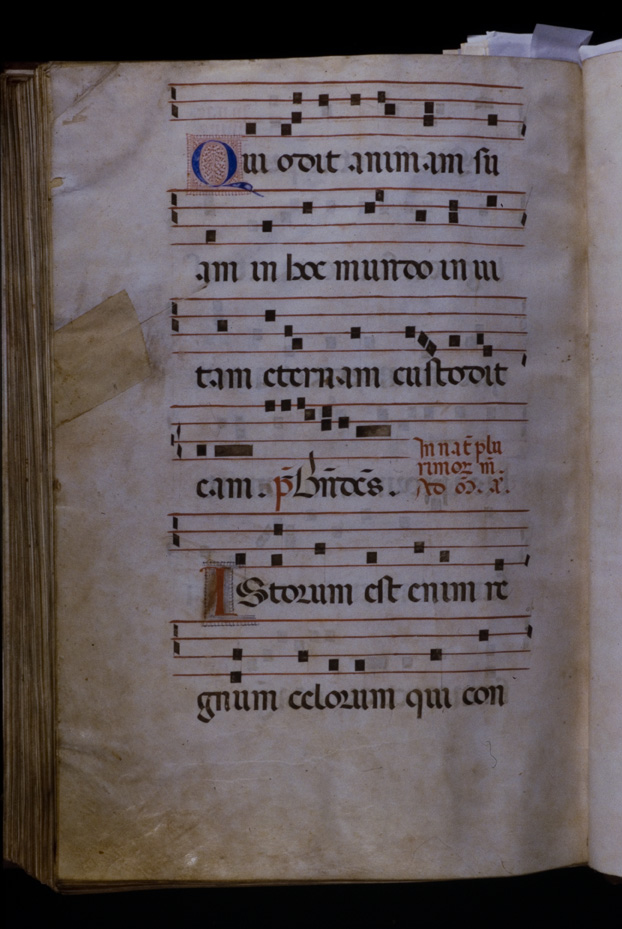 Qui odit animam su
am in hoc mundo in ui
tam eternam custodit
eam. p̄s Bn̄dc̄s.
In nat̄ plu
rimoꝝ m̄.
Ad
IStorum est enim re
gnum celorum qui con